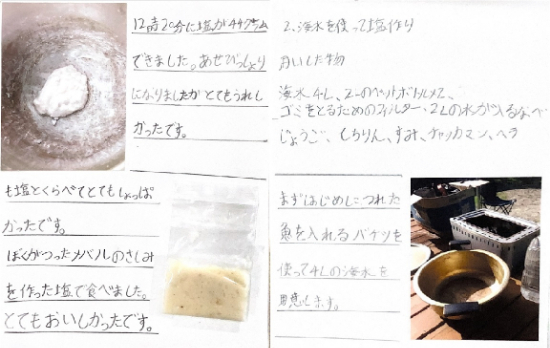 12時20分に塩が44グラム
できました。あせびっしょり
になりましたがとてもうれし
かったです。
も塩とくらべてとてもしょっぱ
かったです。
ぼくがつったメバルのさしみ
を作った塩で食べました。
とてもおいしかったです。
2、海水を使って塩作り
用いした物
海水4L、2Lのペットボトル×2、
ゴミをとるためのフィルター、2Lの水が入るなべ
じょうご、しちりん、すみ、チャッカマン、ヘラ
まずはじめに、つれた
魚を入れるバケツを
使って4Lの海水を
用意します。